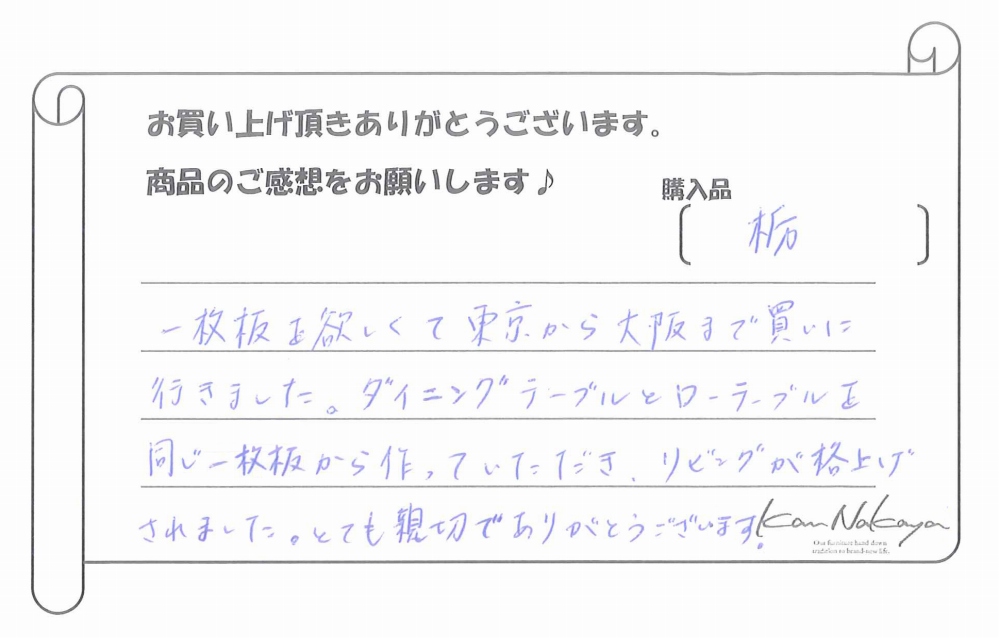 お買い上げ頂きありがとうございます。
商品のご感想をお願いします♪
購入品
栃
一枚板を欲しくて東京から大阪まで買いに
行きました。ダイニングテーブルとローテーブルを
同じ一枚板から作っていただき、リビングが格上げ
されました。とても親切でありがとうございます。
Kan Nakaya
Our furniture hand down
tradition to brand-new life.